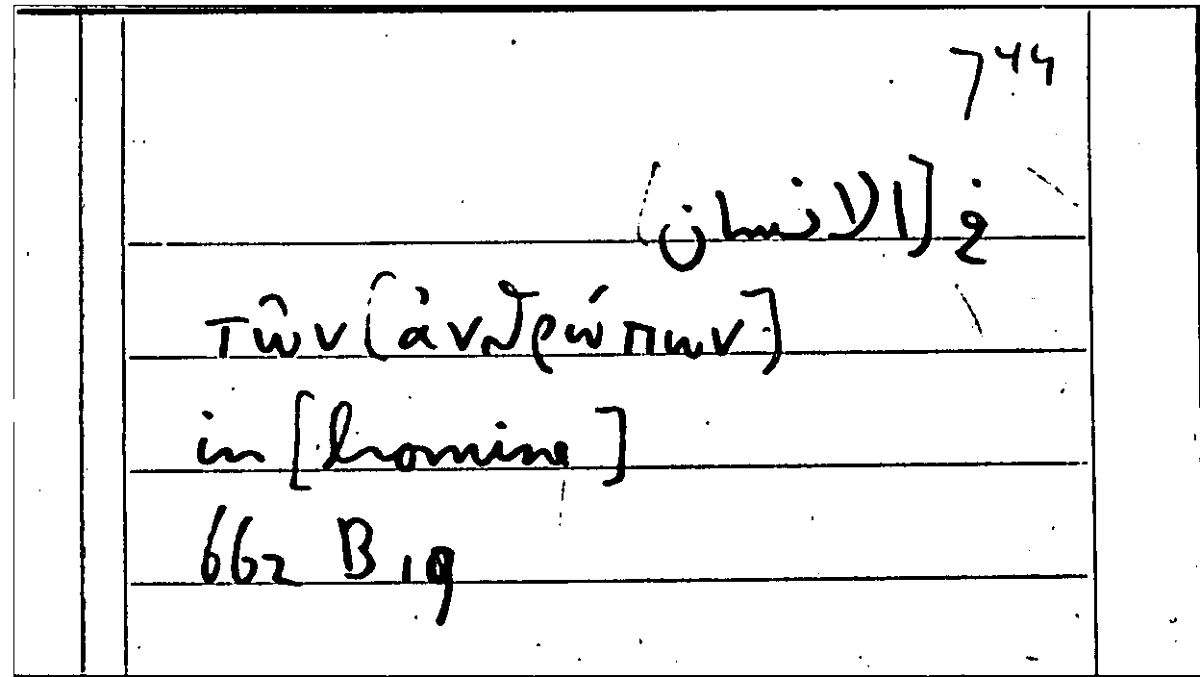 744
في [الانسان]
τῶν [ἀνθρώπων]
in [homine]
662 B 19